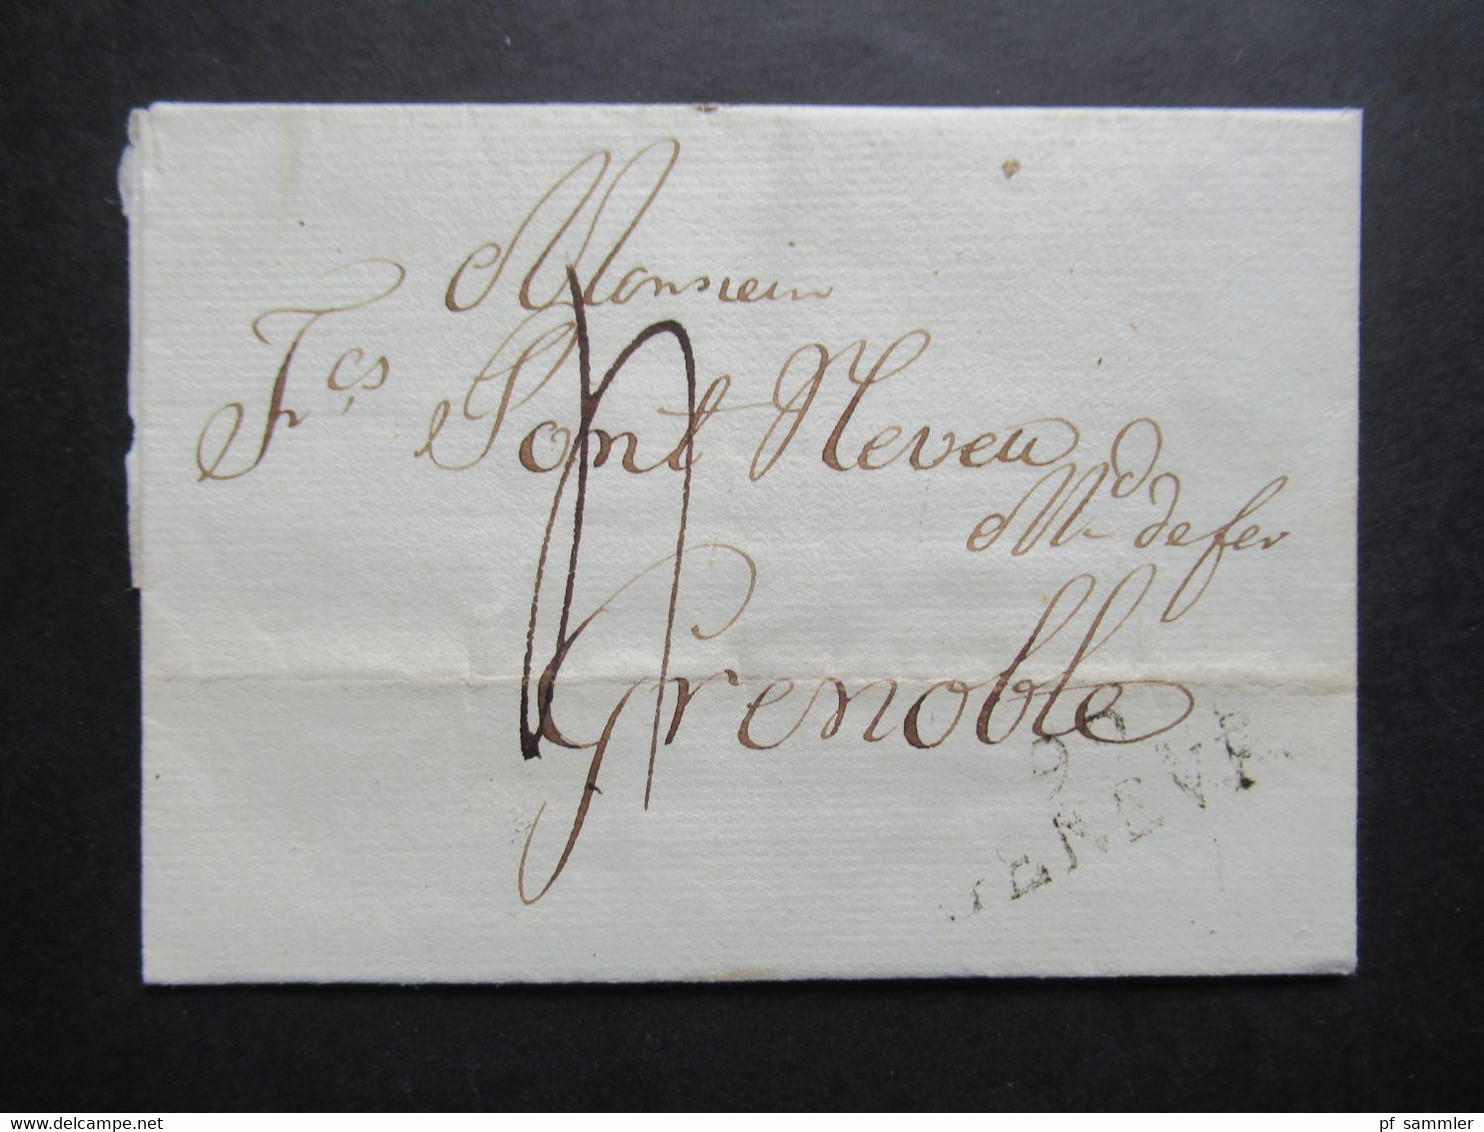 Monsieur
F.çs Pont Neveu
Md de fer
Grenoble
99
GENEVE
www.delcampe.net
pf_sammler